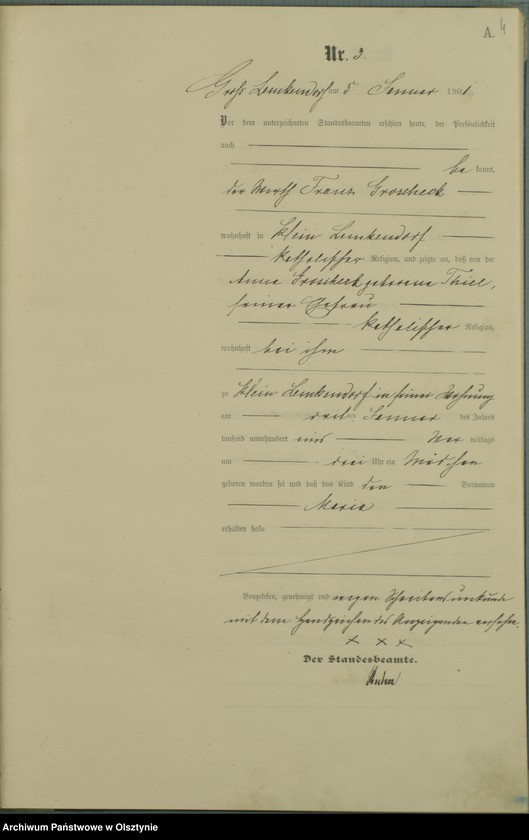 A. 4
Nr. 3.
Groß Lemkendorf am 5 Januar 1901
Vor dem unterzeichneten Standesbeamten erschien heute, der Persönlichkeit
nach
be kannt,
der Wirth Franz Groscheck
wohnhaft in Klein Lemkendorf
katholischer Religion, und zeigte an, daß von der
Anna Groscheck geborene Thiel,
seiner Ehefrau
katholischer Religion,
wohnhaft bei ihm
zu Klein Lemkendorf in seiner Wohnung
am drei ten Januar des Jahres
tausend neunhundert eins Vor mittags
um drei Uhr ein Mädchen
geboren worden sei und daß das Kind den Vornamen
Maria
erhalten habe
Vorgelesen, genehmigt und wegen Schreibensunkunde
mit dem Handzeichen des Anzeigenden versehen.
× × ×
Der Standesbeamte.
Archiwum Państwowe w Olsztynie